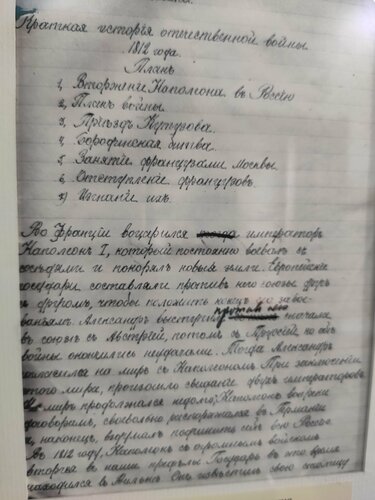 Краткая исторія отечественной войны
1812 года.
Планъ
1, Вторженіе Наполеона въ Россію
2, Планъ войны.
3, Пріѣздъ Кутузова.
4, Бородинская битва.
5, Занятіе французами Москвы.
6, Отступленіе французовъ.
7) Изгнаніе ихъ.
Во Франціи воцарился императоръ
Наполеонъ I, который постоянно воевалъ съ
сосѣдями и покорялъ новыя земли. Европейскіе
государи составляли противъ него союзы другъ
съ другомъ, чтобы положить конецъ его завое-
ваніямъ. Александръ выступилъ противъ него сначала
въ союзѣ съ Австріей, потомъ съ Пруссіей, но обѣ
войны окончились неудачами. Тогда Александръ
согласился на миръ съ Наполеономъ. При заключеніи
этого мира, произошло свиданіе двухъ императоровъ.
Но миръ продолжался недолго. Наполеонъ вопреки
договорамъ, своевольно распоряжался въ Германіи
и, наконецъ, вздумалъ подчинить себѣ всю Россію
Въ 1812 году, Наполеонъ съ огромнымъ войскомъ
вторгся въ наши предѣлы Государь въ это время
находился въ Вильнѣ. Онъ свою столицу